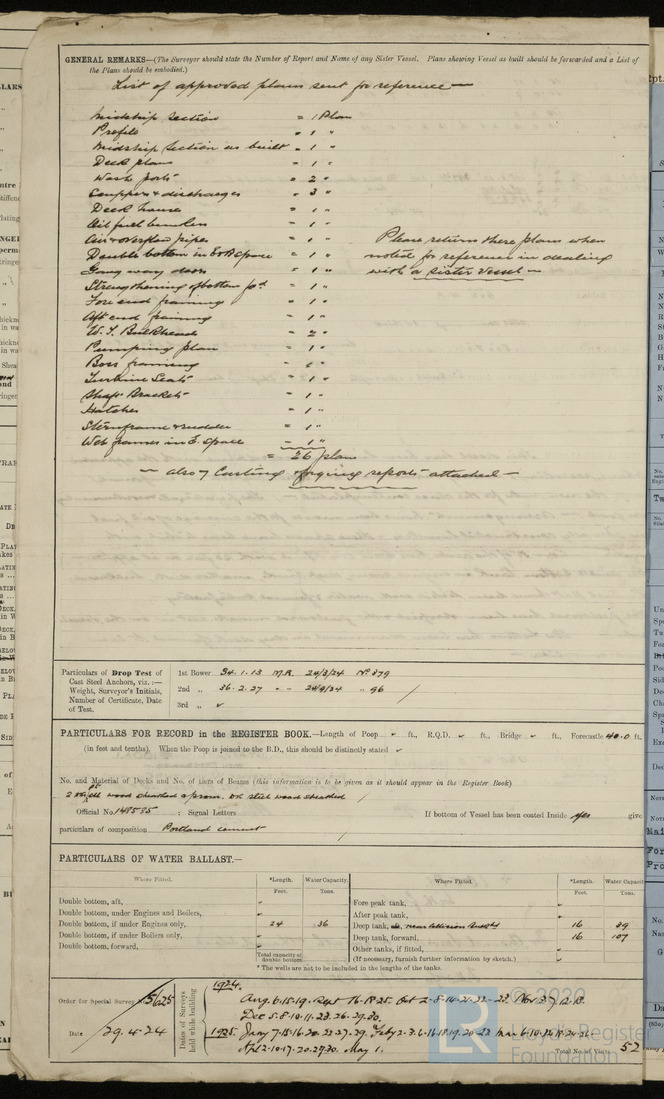 GENERAL REMARKS—(The Surveyor should state the Number of Report and Name of any Sister Vessel. Plans showing Vessel as built should be forwarded and a List of
the Plans should be embodied.)
List of approved plans sent for reference —
Midship section = 1 Plan
Profile = 1 "
Midship section as built = 1 "
Deck plan = 1 "
Wash ports = 2 "
Scuppers & discharges = 3 "
Deck houses = 1 "
Oil fuel bunkers = 1 "
Air & overflow pipes = 1 "
Double bottom in E & B space = 1 "
Gang way doors = 1 "
Strengthening of bottom ford = 1 "
Fore end framing = 1 "
Aft end framing = 1 "
W. T. Bulkheads = 2 "
Pumping plan = 1 "
Boss framing = "
Turbine Seats = 1 "
Shaft Brackets = 1 "
Hatches = 1 "
Sternframe & rudder = 1 "
Web frames in E. space = 1 "
= 26 plans
Please return these plans when
noted for reference in dealing
with a sister vessel —
— also 7 Casting & forging reports attached —
Particulars of Drop Test of
Cast Steel Anchors, viz.:—
Weight, Surveyor's Initials,
Number of Certificate, Date
of Test.
1st Bower 34.1.13 M.R. 20/3/24 No 379
2nd " 36.2.27 " " 24/9/24 " 96
3rd "
PARTICULARS FOR RECORD in the REGISTER BOOK.—Length of Poop ft., R.Q.D. ft., Bridge ft., Forecastle 40.0 ft.
(in feet and tenths). When the Poop is joined to the B.D., this should be distinctly stated
No. and Material of Decks and No. of tiers of Beams (this information is to be given as it should appear in the Register Book)
wood sheathed wood sheathed
Official No. 148525 ; Signal Letters If bottom of Vessel has been coated Inside yes give
particulars of composition Portland cement
PARTICULARS OF WATER BALLAST.—
Where Fitted. *Length. Water Capacity. Where Fitted. *Length. Water Capacit
Feet. Tons. Feet. Tons.
Double bottom, aft, Fore peak tank,
Double bottom, under Engines and Boilers, After peak tank,
Double bottom, if under Engines only, 24 36 Deep tank, 16 39
Double bottom, if under Boilers only, Deep tank, forward, 16 107
Double bottom, forward, Other tanks, if fitted,
Total capacity of double bottom (If necessary, furnish further information by sketch.)
* The wells are not to be included in the lengths of the tanks.
Order for Special Survey 5625
Date 29.4.24
Dates of Surveys held while building
1924.
Aug. 6.15.19. Sept 16.18.25. Oct 2.8.14.21.22.23. Nov 3.7.12.13.
Dec 5.8.10.11.23.26.29.30.
1925. Jany 7.15.16.20.22.27.29. Feby 2.3.6.16.18.19.20.23
Apl 2.10.17.20.27.30. May 1.
Total No. of Visits 52
LR
© 2020
Lloyd's Register
Foundation